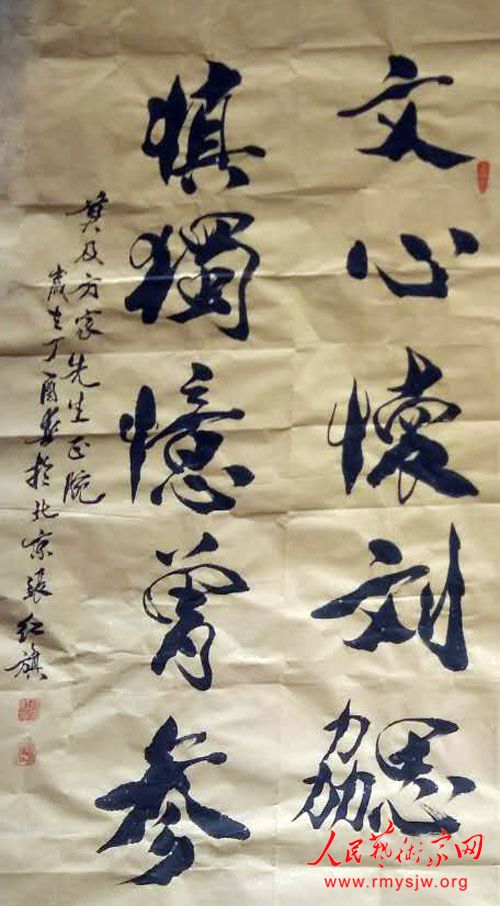 文心懷刘勰
慎獨憶曾參
及方家先生正腕
歲在丁酉於北京張红旗
人民藝術家网
www.rmysjw.org